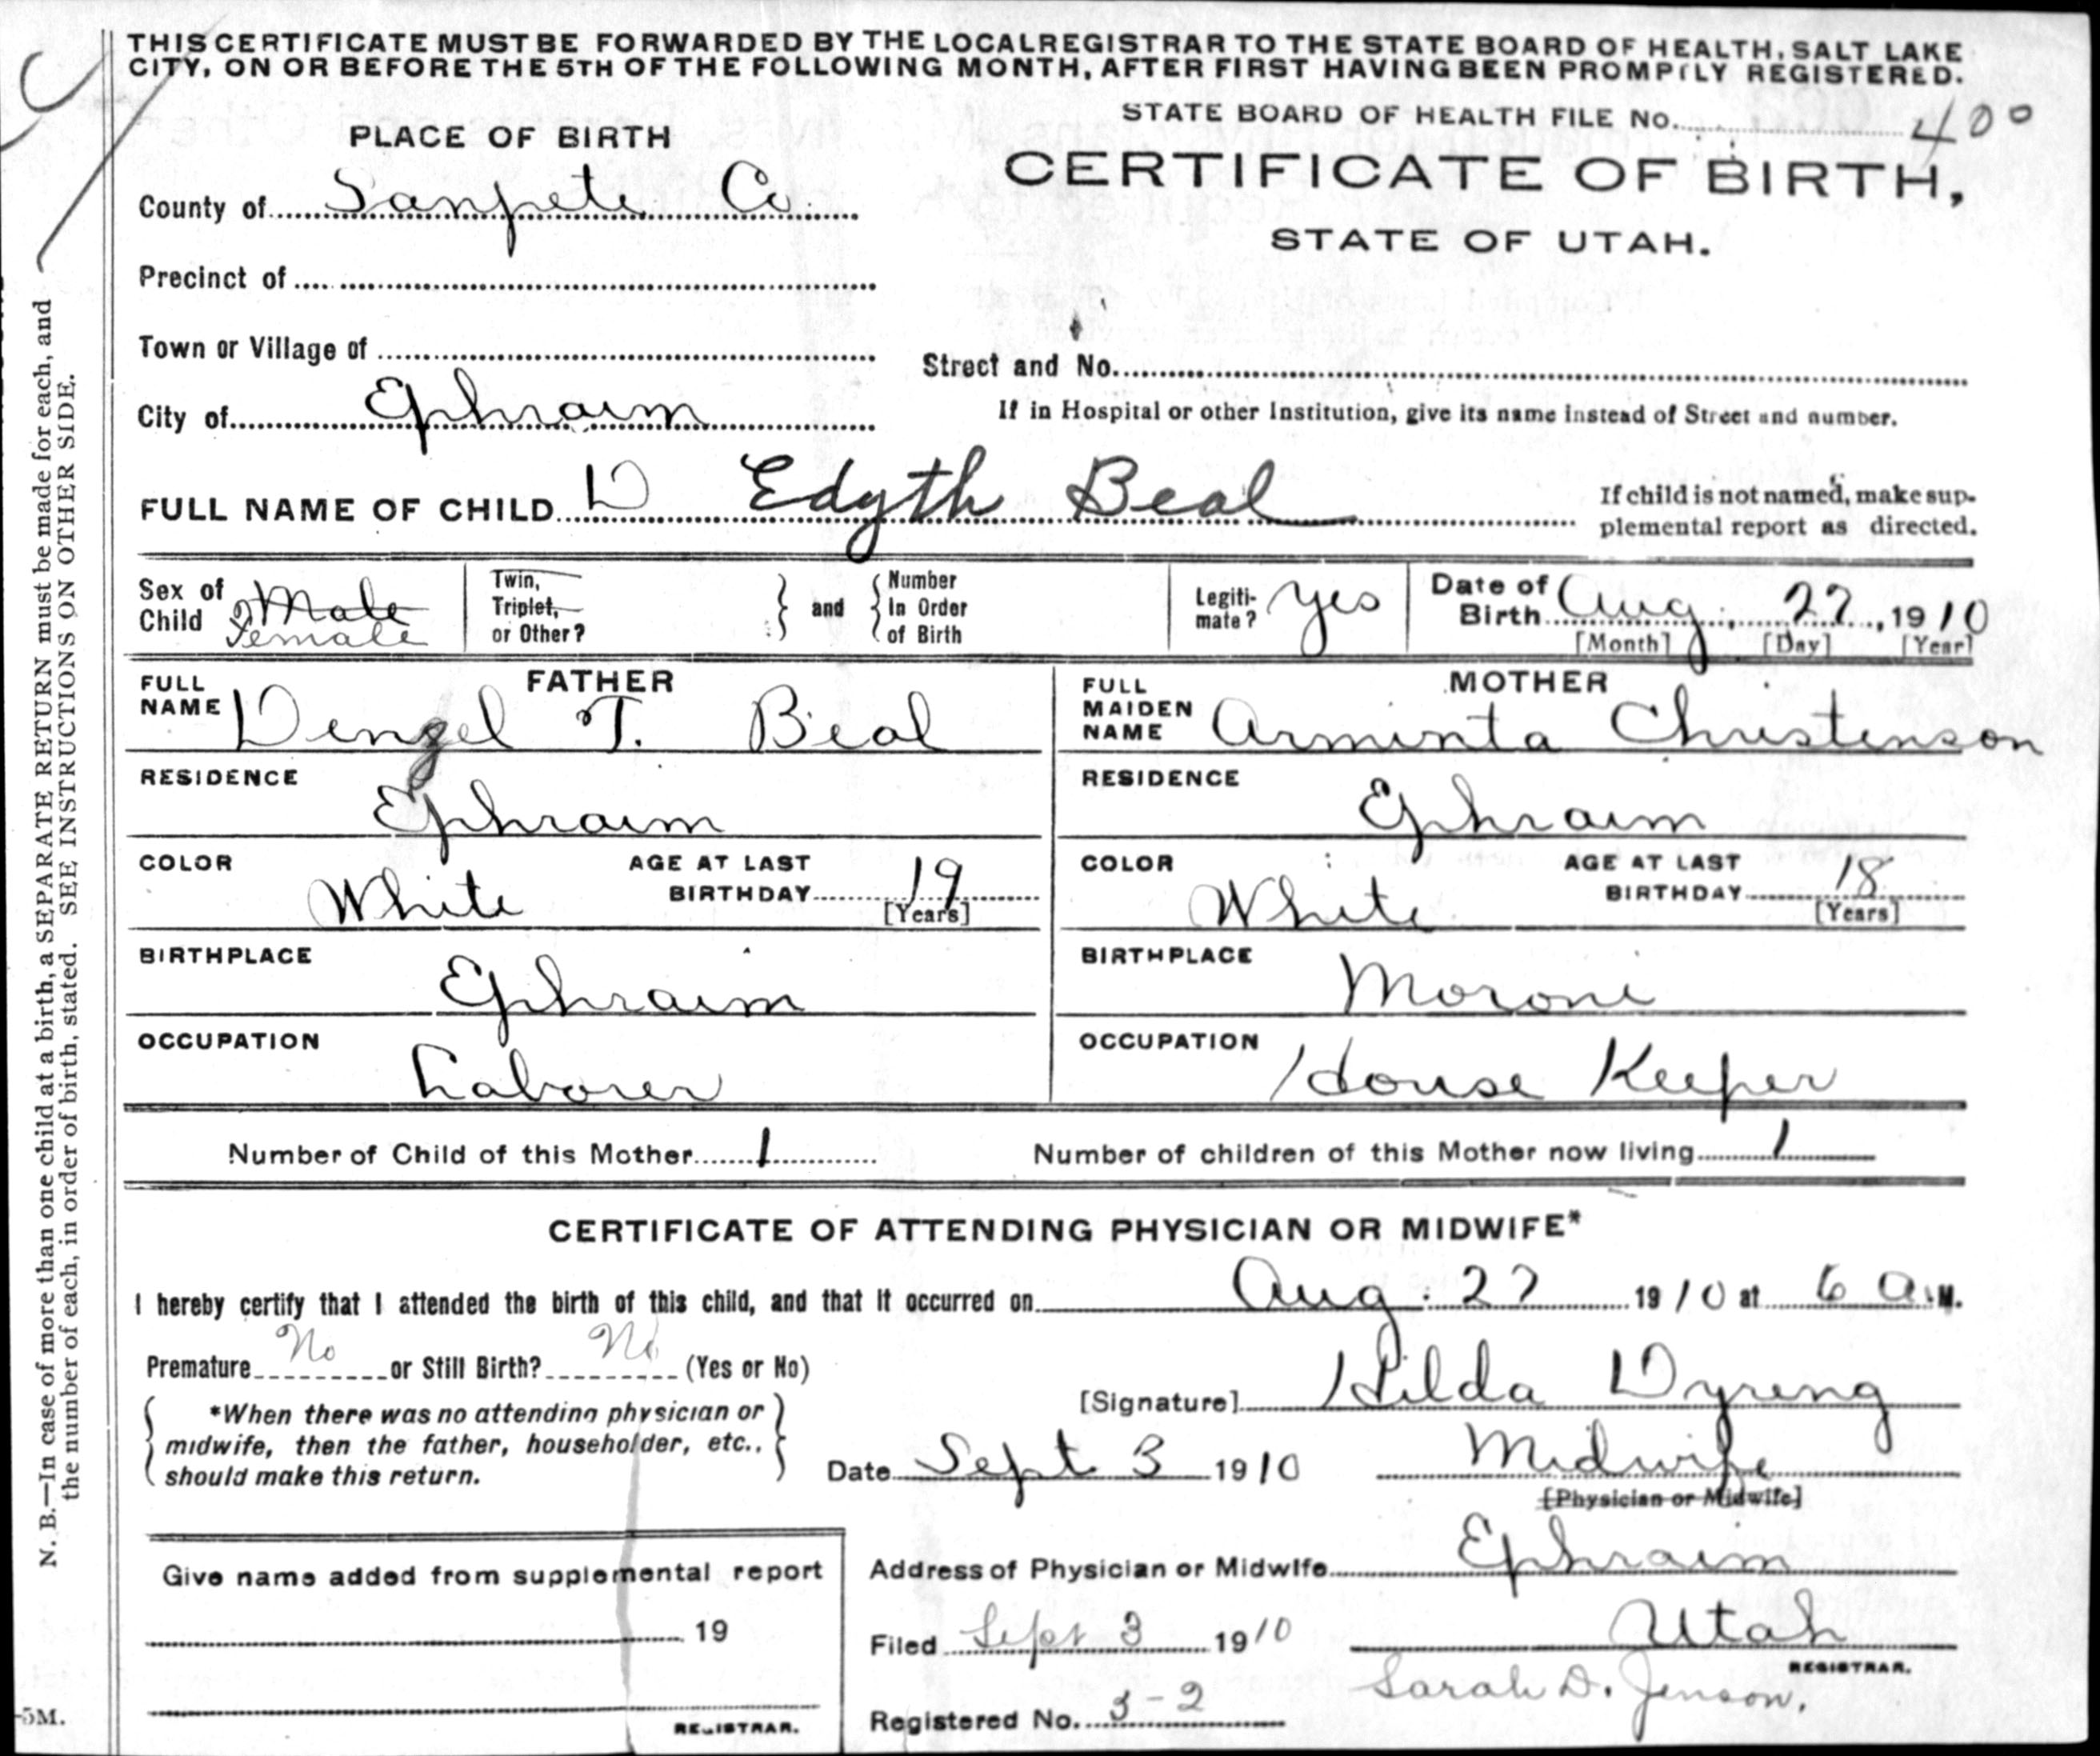 THIS CERTIFICATE MUST BE FORWARDED BY THE LOCAL REGISTRAR TO THE STATE BOARD OF HEALTH, SALT LAKE
CITY, ON OR BEFORE THE 5TH OF THE FOLLOWING MONTH, AFTER FIRST HAVING BEEN PROMPTLY REGISTERED.
STATE BOARD OF HEALTH FILE No. 400
PLACE OF BIRTH
CERTIFICATE OF BIRTH,
STATE OF UTAH.
County of Sanpete Co.
Precinct of
Town or Village of
Street and No.
City of Ephraim
If in Hospital or other Institution, give its name instead of Street and number.
FULL NAME OF CHILD D Edyth Beal
If child is not named, make sup-
plemental report as directed.
Sex of Child Male Female
Twin, Triplet, or Other?
and
Number In Order of Birth
Legiti-mate? Yes
Date of Birth Aug. 22, 1910
[Month] [Day] [Year]
FATHER
FULL NAME Denzel T. Beal
RESIDENCE
Ephraim
COLOR White
AGE AT LAST BIRTHDAY 19
[Years]
BIRTHPLACE
Ephraim
OCCUPATION
Laborer
MOTHER
FULL MAIDEN NAME Arminta Christenson
RESIDENCE
Ephraim
COLOR White
AGE AT LAST BIRTHDAY 18
[Years]
BIRTHPLACE
Moroni
OCCUPATION
House Keeper
Number of Child of this Mother 1
Number of children of this Mother now living 1
CERTIFICATE OF ATTENDING PHYSICIAN OR MIDWIFE*
I hereby certify that I attended the birth of this child, and that it occurred on Aug. 22 1910 at 6 A.M.
Premature No or Still Birth? No (Yes or No)
*When there was no attending physician or
midwife, then the father, householder, etc.,
should make this return.
[Signature] Hilda Dyreng
Date Sept 3 1910
Midwife
[Physician or Midwife]
Give name added from supplemental report
19
REGISTRAR.
Address of Physician or Midwife Ephraim
Utah
Filed Sept 3 1910
REGISTRAR.
Sarah D. Jenson.
Registered No. 3-2
N. B.—In case of more than one child at a birth, a SEPARATE RETURN must be made for each, and
the number of each, in order of birth, stated. SEE INSTRUCTIONS ON OTHER SIDE.
5M.